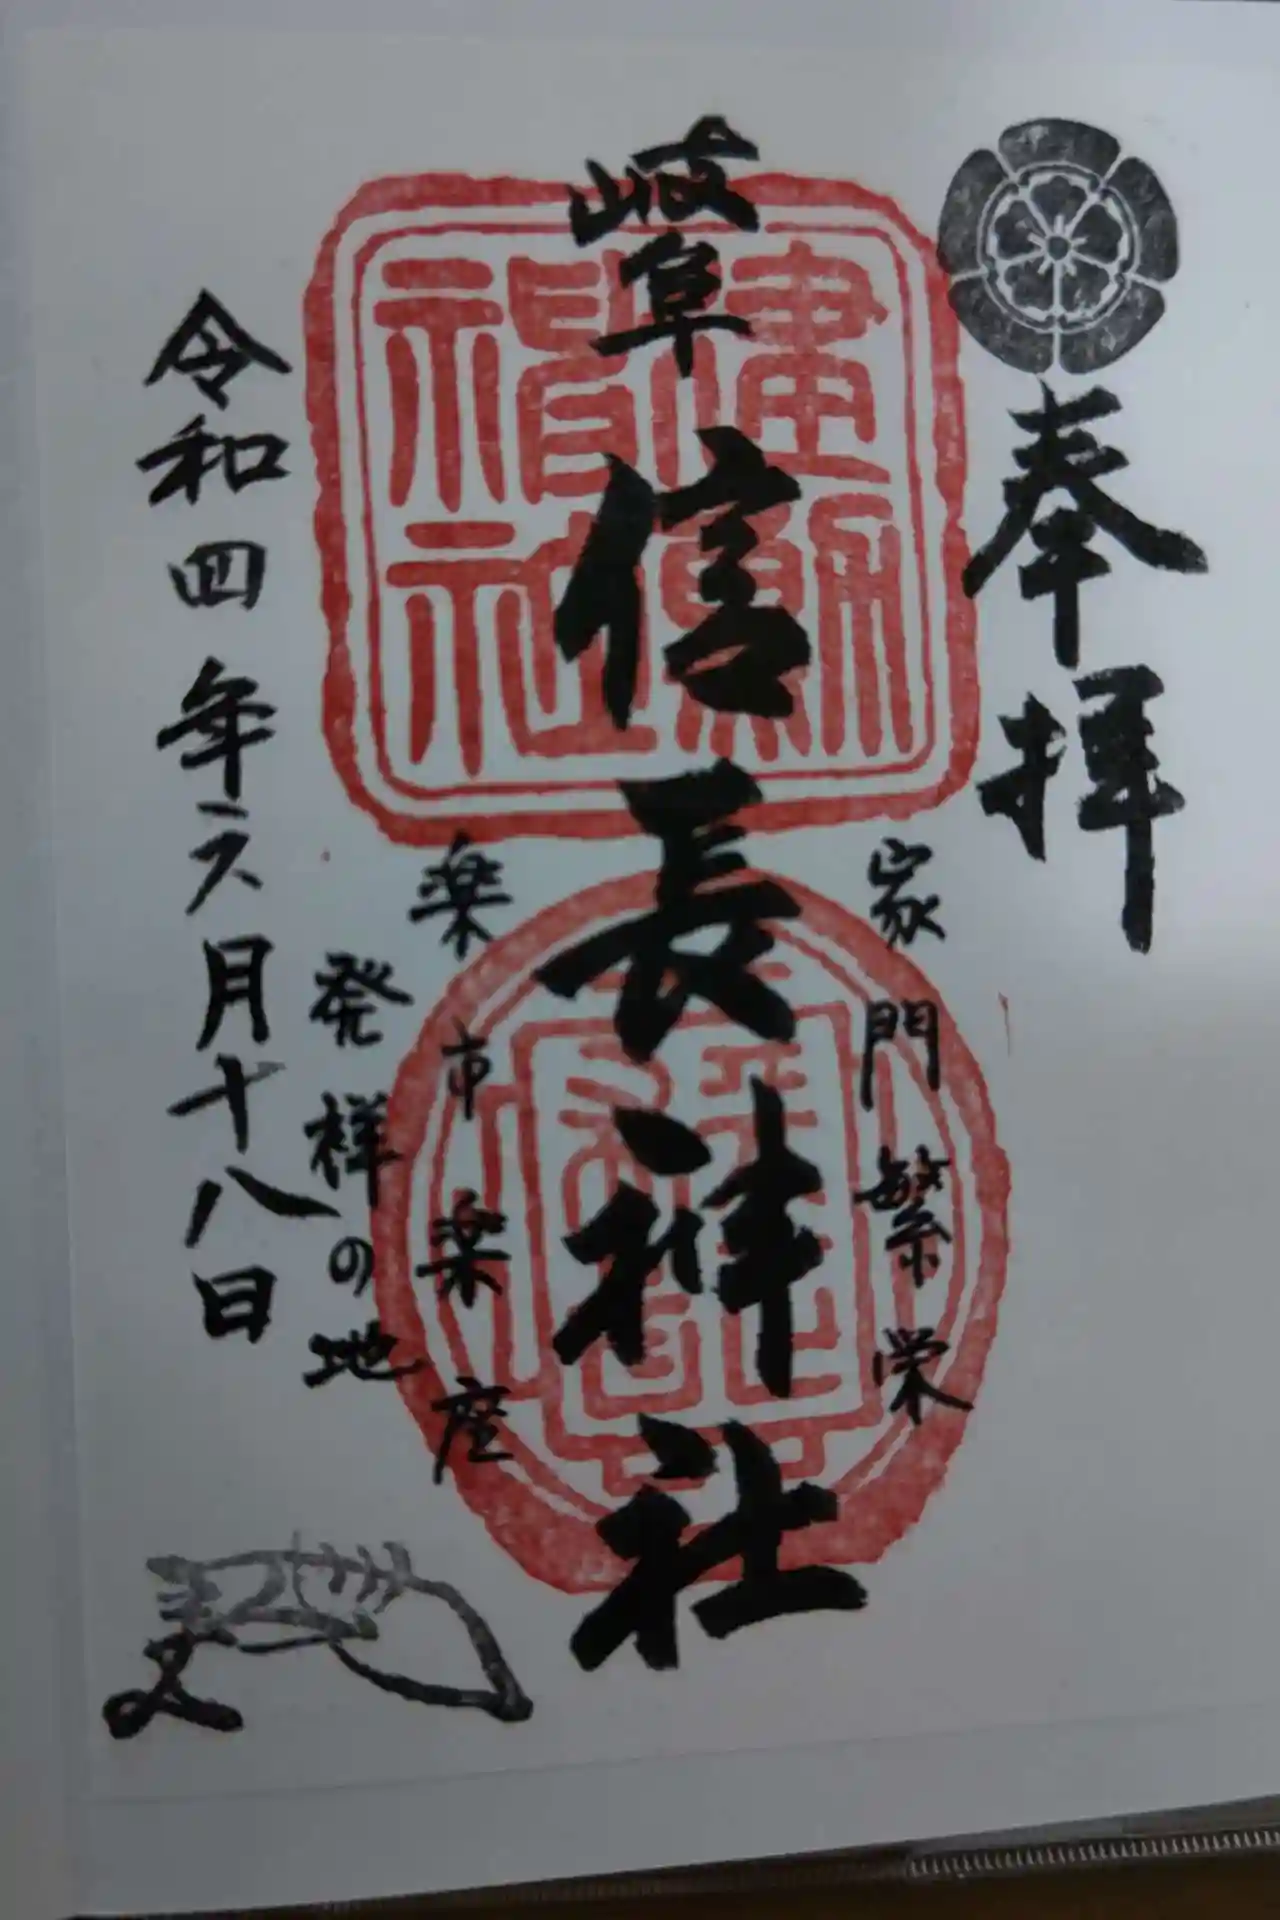 奉拝
家門繁栄
岐阜信長神社
建勲神社
楽市楽座
発祥の地
令和四年六月十八日